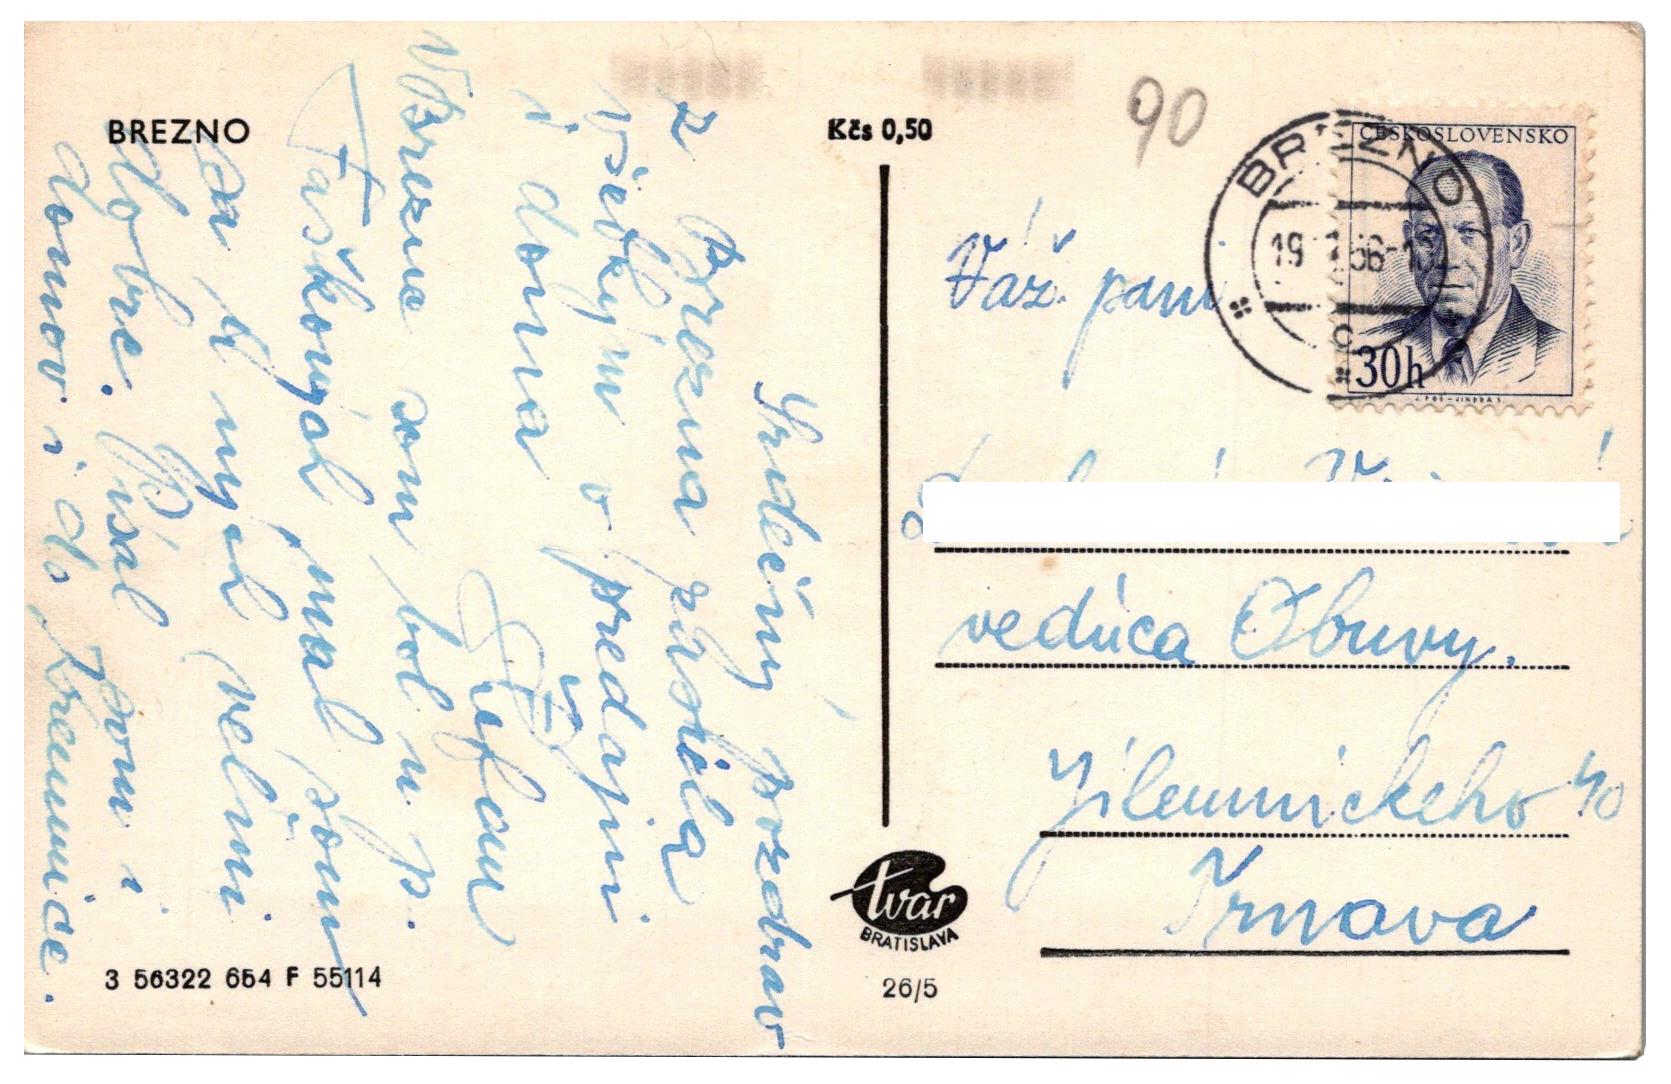 BREZNO
Kčs 0,50
90
ČESKOSLOVENSKO
30h
BREZNO
19
56-1
c
Váž. pani
vedúca Obuvy.
Jilemnického 40
Trnava
Srdečný pozdrav
z Brezna zasiela
všetkým v predajni
i doma
Štefan
V Brezne som bol u p.
Taškovýh mal som
sa tu veľmi
dobre. Písal som i
domov i do Kremnice.
tvar
BRATISLAVA
26/5
3 56322 654 F 55114